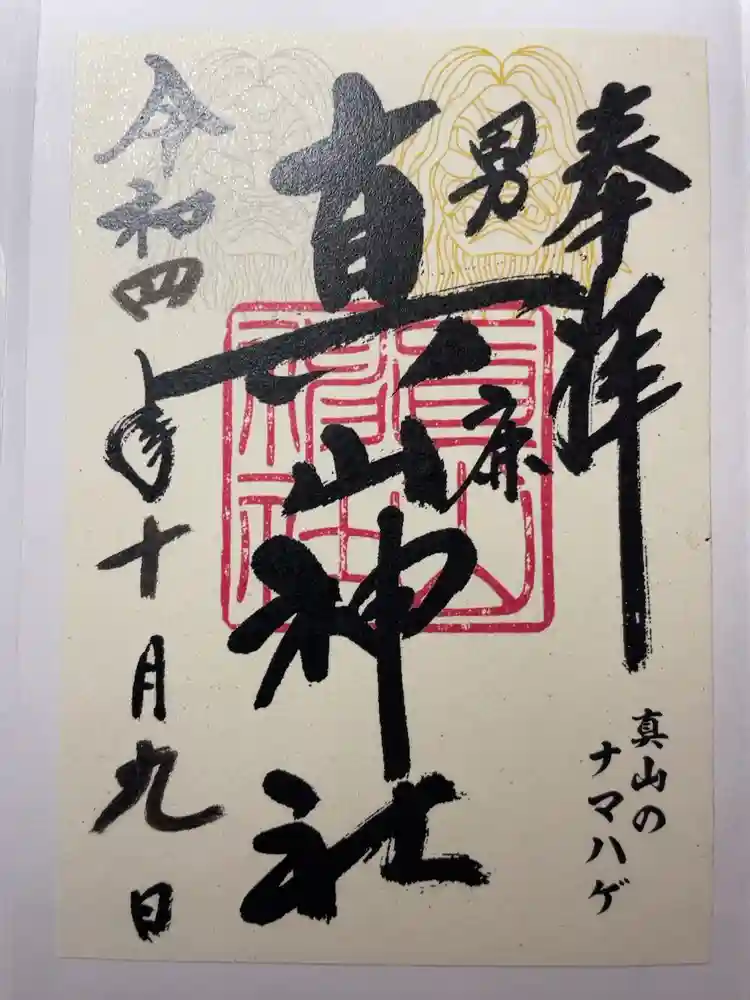 奉拝
男鹿
真山神社
令和四年十月九日
真山の
ナマハゲ
真山
神社